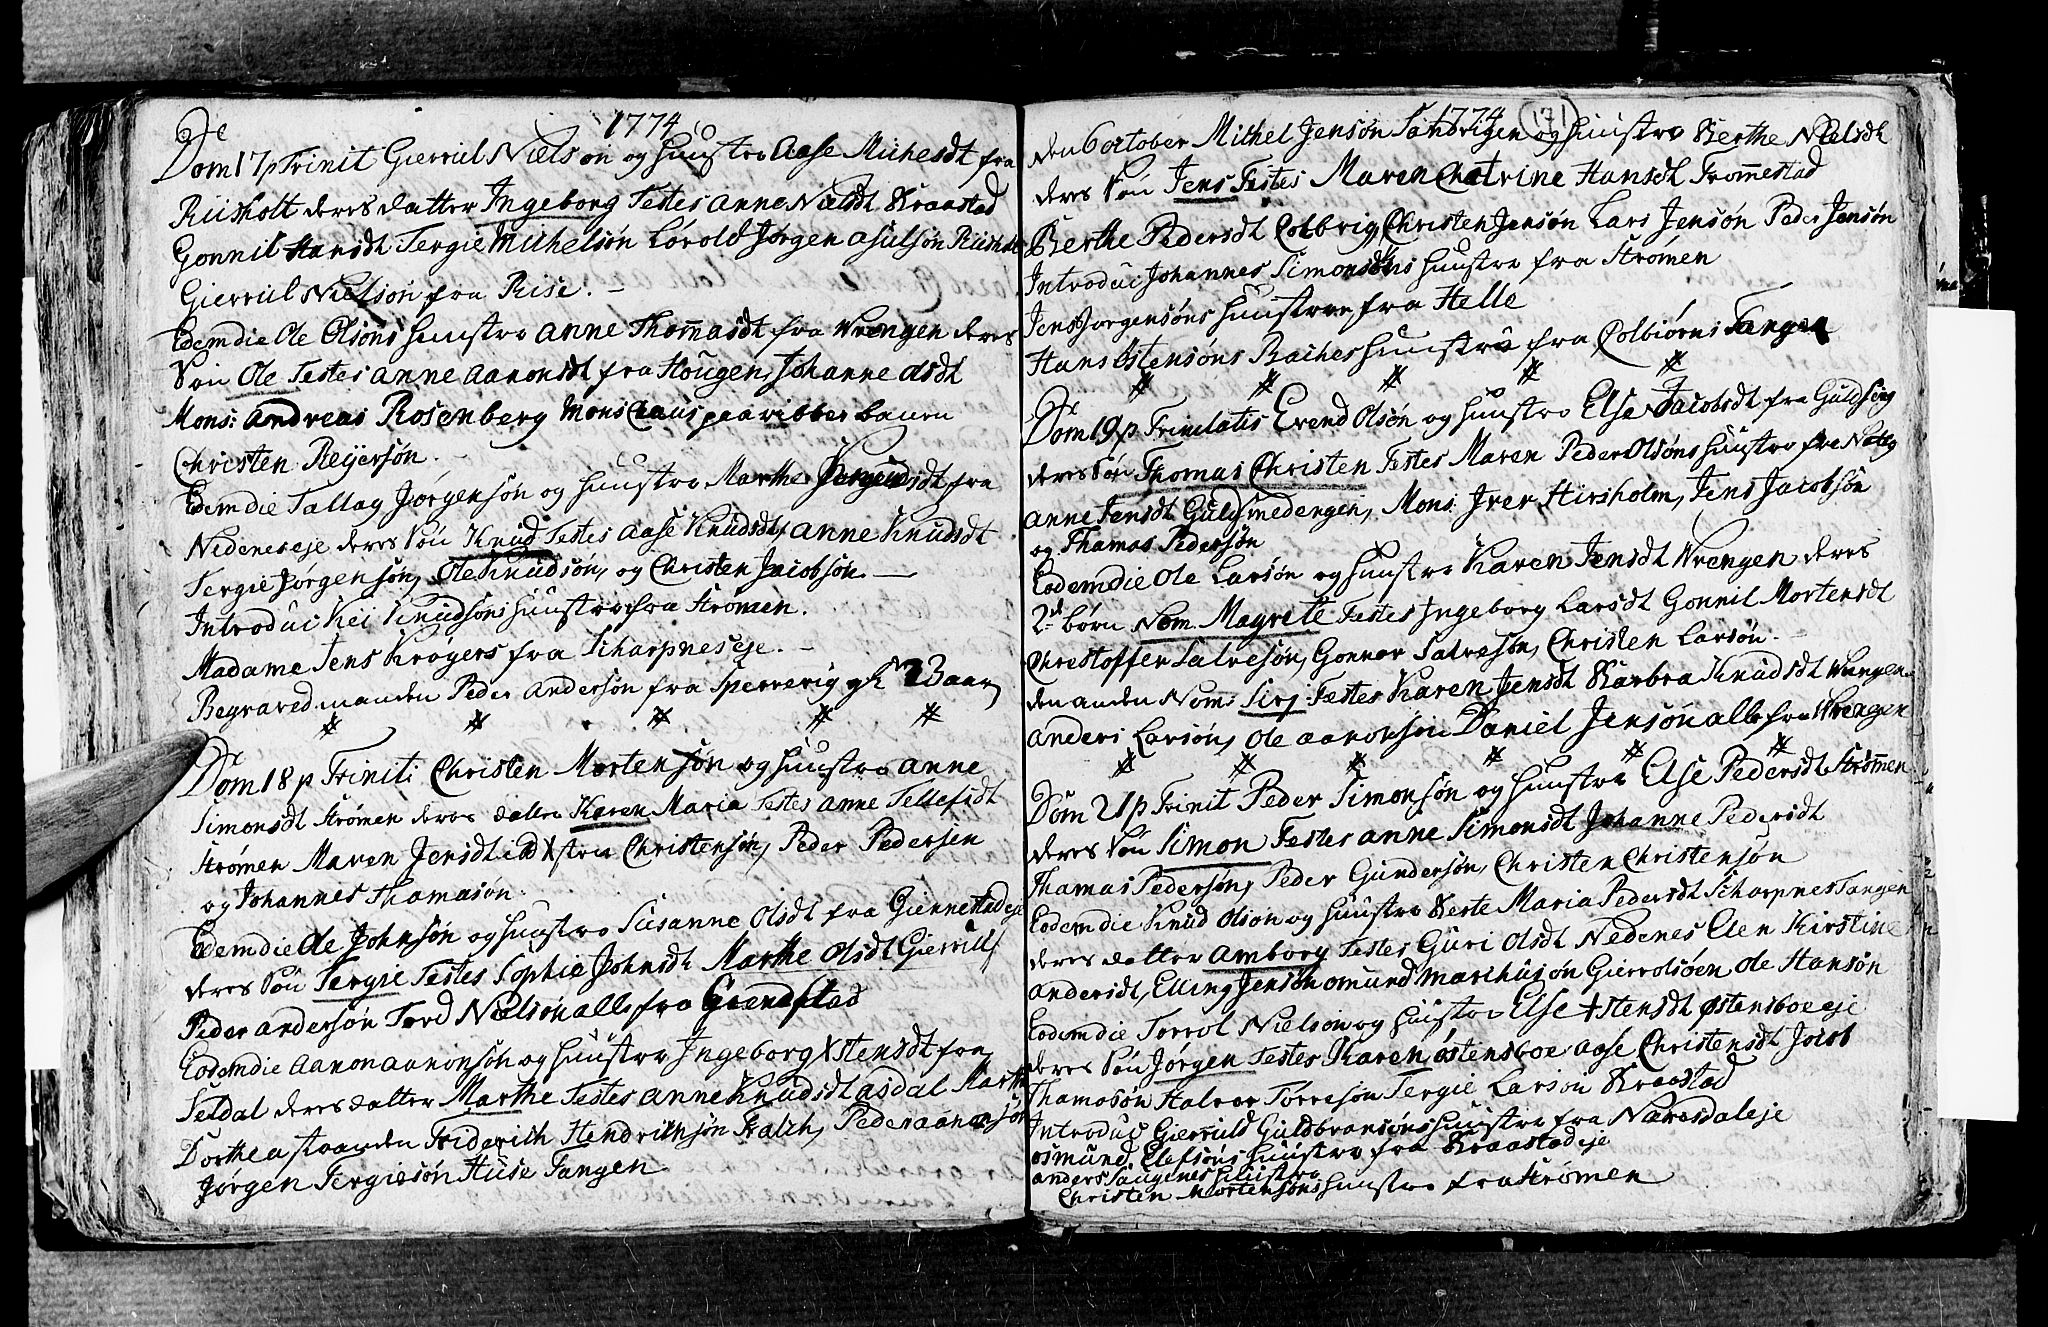 1774
De
Dom 17 p Trinit Gierrul Nielsøn og Huustro Aase Michesdt fra
Riisholt deres datter Ingeborg Testes Anne Nielsdt Braastad
Gonnil Hansdt Tergie Michelsøn Jørgen Asulsøn Riisholt
Gierrul Nielsøn fra Rise. –
Eodemdie Ole Olsøns Huustro Anne Thommasdt fra Wrengen deres
Søn Ole Testes Anne Aanonsdt fra Hougen, Johanne Olsdt
Mons: Andreas Rosenberg Mons Claus paa ribber banen
Christen Reijersøn.
Eodemdie Tallag Jørgensøn og Huustro Marthe fra
Nedeneseje deres Søn Knud Testes Aase Knudsdt, Anne Knudsdt
Tergie Jørgensøn, Ole Knudsøn, og Christen Jacobsøn. –
Introduc Kei Knudsøns Huustro fra Strømen.
Madame Jens Krøgers fra Scharpneseje. –
Begraved manden Peder Andersøn fra Sperrevig gl 73 aar
# # # # #
Dom 18 p Triniti Christen Mortensøn og Huustro Anne
Simonsdt Strømen deres datter Karen Maria Testes Anne Tellefsdt
Strømen Maren Jensdt ibd Christensøn, Peder Pedersen
og Johannes Thamasøn.
Eodemdie Ole Johnsøn og Huustro Susanne Olsdt fra Giennestadeje
deres Søn Tergie Testes Sophie Johnsdt Marthe Olsdt Gierrul
Peder Andersøn Tord Nielsøn alle fra Grenestad
Eodemdie Aanon Aanonsøn og Huustro Ingeborg Xstensdt fra
Seldal deres datter Marthe Testes Anne Knudsdt Asdal Marthe
Dorthea staanden Friderich Hendrichsøn Falch, Peder Aanonsøn
Jørgen Tergiesøn Huse Tangen.
1774 171
den 6 October Michel Jensøn Sandvigen og Huustro Berthe Nielsdt
deres Søn Jens Testes Maren Chatrine Hansdt Trommestad
Berthe Pedersdt Colbrig Christen Jensøn Lars Jensøn Peder Jensøn
Introduc Johannes Simonsøns Huustro fra Strømen
Jens Jorgensøns Huustroe fra Helle
Hans Østensøns Baches Huustro fra Colbiørns Tangen
# # # # #
De
Dom 19 p Trinitatis Evend Olsøn og Huustro Else Jacobsdt fra
deres Søn Thomas Christen Testes Maren Peder Olsøns Huustro fra
Anne Jensdt Guldsmedengen, Mons: Iver Hirsholm, Jens Jacobsøn
og Thamas Pedersøn
Eodemdie Ole Larsøn og Huustro Karen Jensdt Wrengen deres
2de børn Nom Magrete Testes Ingeborg Larsdt Gonnil Mortensdt
Chrestoffer Salvesøn, Gonner Salvesøn, Christen Larsøn. –
den anden Nom: Sirj Testes Karen Jensdt Barbra Knudsdt Wrengen
Anders Larsøn, Ole Aanonsøn Daniel Jensøn alle fra Wrengen
# # # # # #
Dom 21 p Trinit Peder Simonsøn og Huustro Else Pedersdt Strømen
deres Søn Simon Testes Anne Simonsdt Johanne Pedersdt
Thamas Pedersøn, Peder Gundersøn, Christen Christensøn
Eodemdie Knud Olsøn og Huustro Berte Maria Pedersdt Scharpnes Tangen
deres datter Amborg Testes Guri Olsdt Nedenes Elen Kirstine
Andersdt, Elling Jensøn Osmund Marchusøn Gierrolsøen Ole Hansøn
Eodemdie Torrol Nielsøn og Huustro Else Xstensdt Østensboeeje
deres Søn Jørgen Testes Karen Østensboe Aase Christensdt Jocob
Thamasøn Halvor Torresøn Tergie Larsøn Braastad
Introduc Gierruld Guldbransøns Huustro fra Næresdaleje
Osmund Elefsøns Huustro fra Braastadeje
Anders Huustro
Christen Mortensøns Huustro fra Strømen